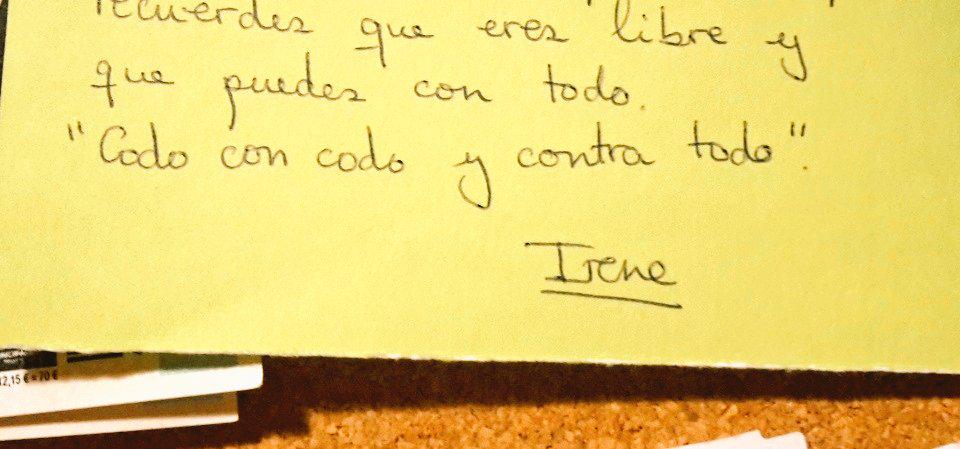 recuerdes que eres libre y
que puedes con todo.
"Codo con codo y contra todo".
Irene
12,15 € = 70 €